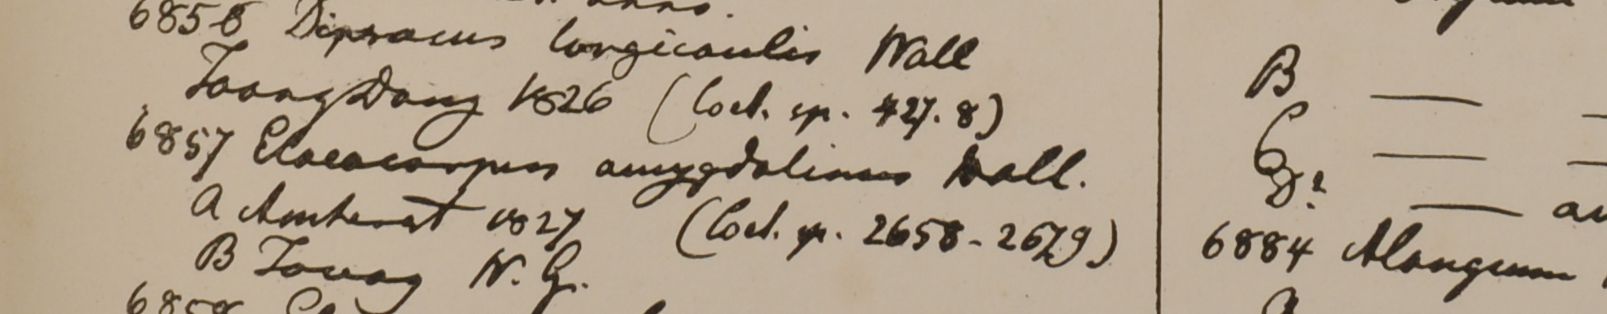 6856 Dipsacus longicaulis Wall
Toong Dong 1826 (Coel. sp. 427.8)
6857 Elaeocarpus amygdalinus Wall.
A Amherst 1827 (Coel. sp. 2658-2679)
B Tavoy W. G.
B —
C —
D? —
6884 Alangium